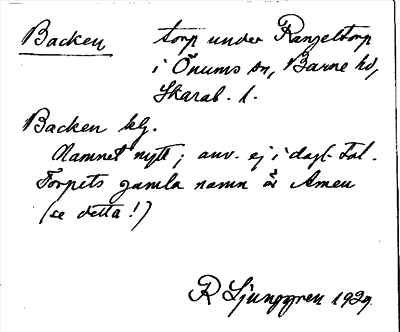 Backen torp under Ranzeltorp
i Önums sn, Barne hd,
Skarab. l.
Backen klg.
Namnet nytt; anv. ej i dagl. tal.
Torpets gamla namn är Amen
(se detta!)
R Ljunggren 1929